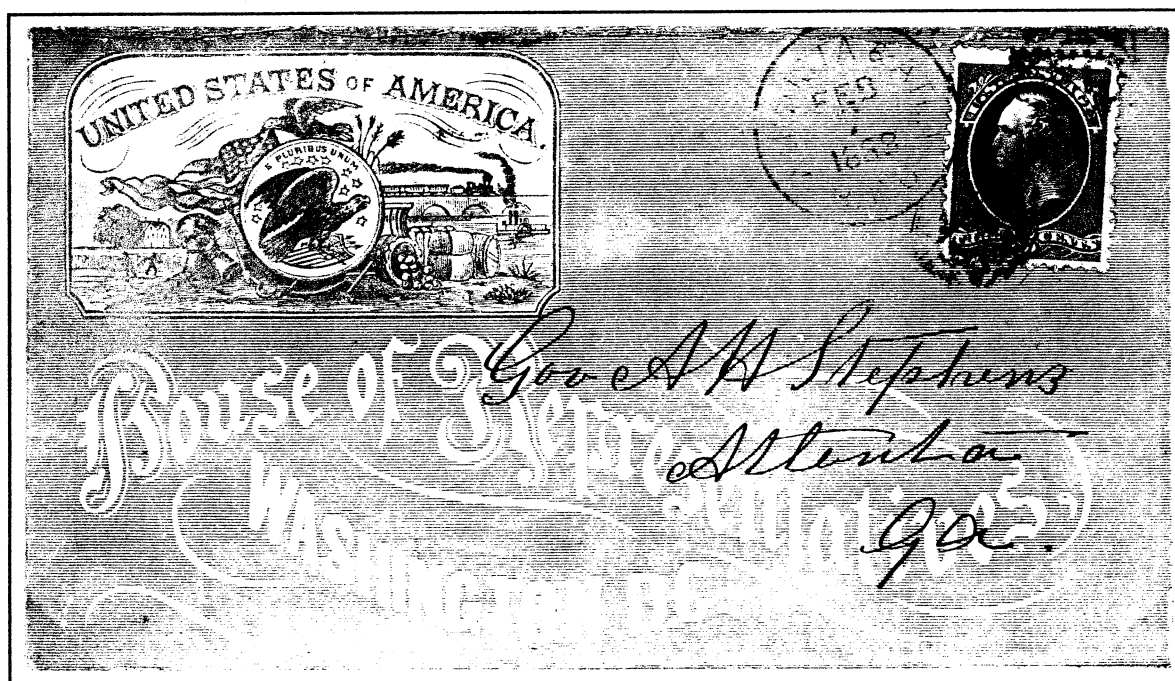 UNITED STATES OF AMERICA
E PLURIBUS UNUM
FEB
House of Representatives,
WASHINGTON, D.C.
Gov A H Stephens
Attenta
Ga.